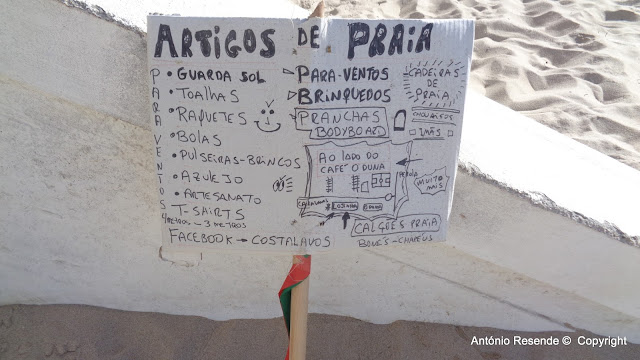 ARTIGOS DE PRAIA
PARAVENTOS
4 METROS - 3 METROS
• GUARDA SOL
• TOALHAS
• RAQUETES
• BOLAS
• PULSEIRAS-BRINCOS
• AZULEJO
• ARTESANATO
T-SHIRTS
FACEBOOK → COSTALAVOS
PARA-VENTOS
BRINQUEDOS
PRANCHAS
BODYBOARD
CADEIRAS
DE
PRAIA
IMÃS
AO LADO DO
CAFÉ O DUNA
PRAIA
MUITO
MAIS
CALÇÕES PRAIA
BONÉS-CHAPÉUS
António Resende © Copyright